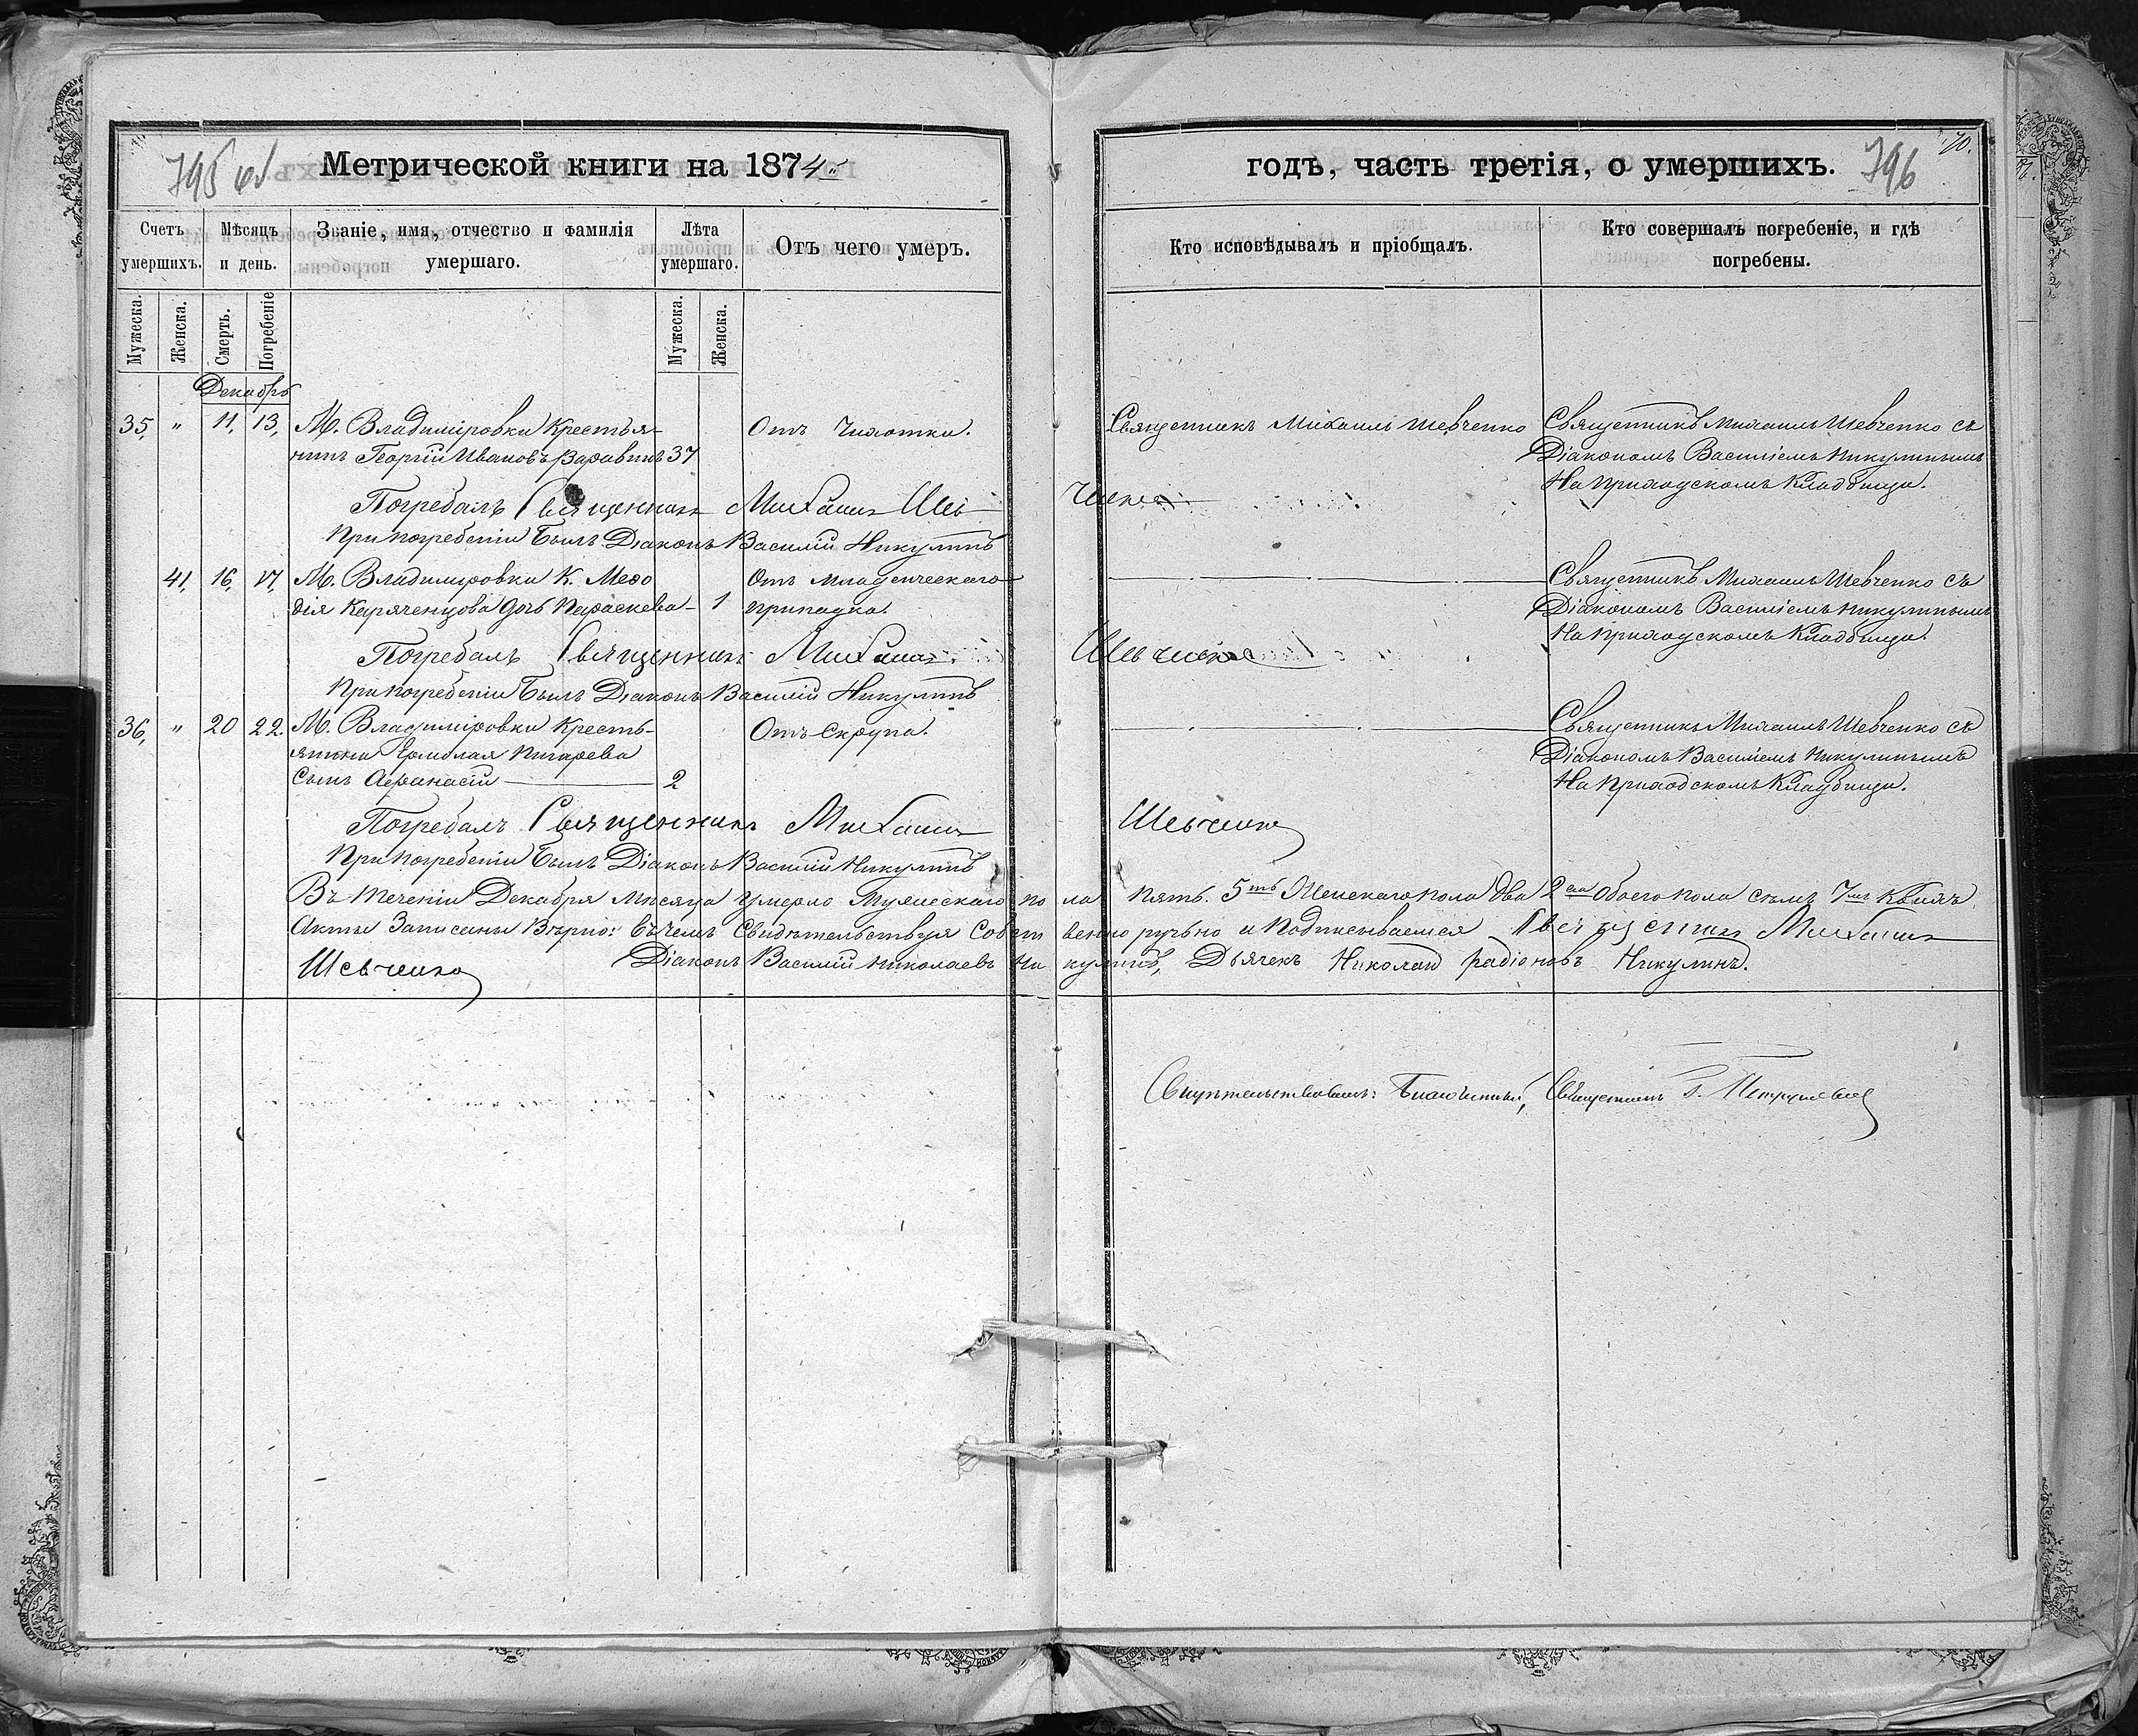 795 об
Метрической книги на 1874
годъ, часть третія, о умершихъ.
796
70.
Счетъ умершихъ.
Мѣсяцъ и день.
Званіе, имя, отчество и фамилія умершаго.
Лѣта умершаго.
Отъ чего умеръ.
Кто исповѣдывалъ и пріобщалъ.
Кто совершалъ погребеніе, и гдѣ погребены.
Мужеска.
Женска.
Смерть.
Погребеніе
Мужеска.
Женска.
Декабрь
35, " 11, 13, М. Владиміровки Крестья- Отъ Чихотки. Священникъ Михаилъ Шевченко Священникъ Михаилъ Шевченко съ
нинъ Георгій Ивановъ 37 Діакономъ Василіемъ Никулинымъ
На приходскомъ Кладбищи.
Погребалъ Священникъ Михаилъ Шев ченко
При погребеніи Былъ Діаконъ Василій Никулинъ
41, 16, 17, М. Владиміровки К. Мефо Отъ младенческаго Священникъ Михаилъ Шевченко съ
дія дочь Параскева - 1 припадка. Діакономъ Василіемъ Никулинымъ
На приходскомъ Кладбищи.
Погребалъ Священникъ Михаилъ Шевченко
При погребеніи Былъ Діаконъ Василій Никулинъ
36, " 20 22. М. Владиміровки Кресть- Отъ Скрупа. Священникъ Михаилъ Шевченко съ
янина Ермолая Пигарева Діакономъ Василіемъ Никулинымъ
Сынъ Афанасій 2 На Приходскомъ Кладбищи.
Погребалъ Священникъ Михаилъ Шевченко
При погребеніи Былъ Діаконъ Василій Никулинъ
Въ теченіи Декабря мѣсяца умерло Мужескаго по ла пять 5ть Женскаго пола два 2ва Обоего пола семь 7мь
Акты Записаны Вѣрно: въ чемъ Свидѣтельствуя Собст венно ручьно и Подписываемся Священникъ Михаилъ
Шевченко Діаконъ Василій Николаевъ Ни кулинъ, Дьячекъ Николай Радіоновъ Никулинъ.
Свидѣтельствовалъ: Благочинный, Священникъ